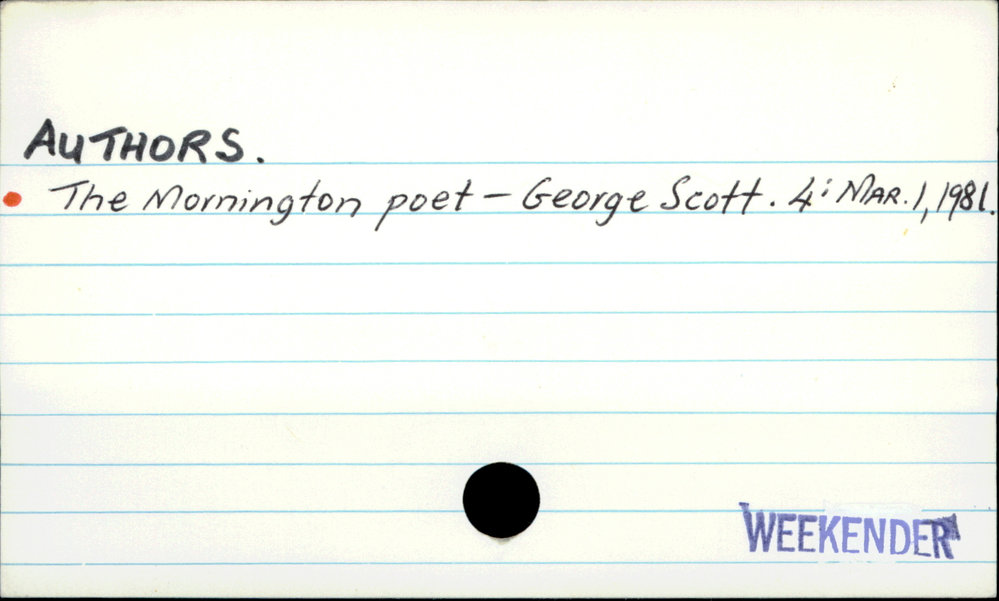 AUTHORS.
The Mornington poet – George Scott. 4: MAR. 1, 1981.
WEEKENDER